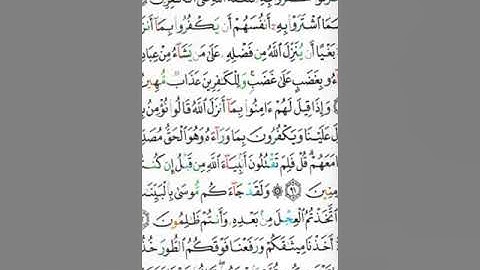 كَفَرُوا۟ بِهِۦ فَلَعْنَةُ ٱللَّهِ عَلَى ٱلْكَٰفِرِينَ
سَمَا ٱشْتَرَوْا۟ بِهِۦٓ أَنفُسَهُمْ أَن يَكْفُرُوا۟ بِمَآ أَنزَ
بَغْيًا أَن يُنَزِّلَ ٱللَّهُ مِن فَضْلِهِۦ عَلَىٰ مَن يَشَآءُ مِنْ عِبَادِ
ءُو بِغَضَبٍ عَلَىٰ غَضَبٍ وَلِلْكَٰفِرِينَ عَذَابٌ مُّهِينٌ
وَإِذَا قِيلَ لَهُمْ ءَامِنُوا۟ بِمَآ أَنزَلَ ٱللَّهُ قَالُوا۟ نُؤْمِنُ بِ
لَ عَلَيْنَا وَيَكْفُرُونَ بِمَا وَرَآءَهُۥ وَهُوَ ٱلْحَقُّ مُصَدِّ
امَعَهُمْ ۗ قُلْ فَلِمَ تَقْتُلُونَ أَنۢبِيَآءَ ٱللَّهِ مِن قَبْلُ إِن كُنتُ
مِنِينَ ٩١ ۞ وَلَقَدْ جَآءَكُم مُّوسَىٰ بِٱلْبَيِّنَ
ٱتَّخَذْتُمُ ٱلْعِجْلَ مِنۢ بَعْدِهِۦ وَأَنتُمْ ظَٰلِمُونَ
أَخَذْنَا مِيثَٰقَكُمْ وَرَفَعْنَا فَوْقَكُمُ ٱلطُّورَ خُذُ